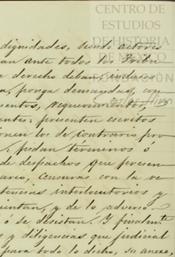 CENTRO DE
ESTUDIOS
DE HISTORIA
dignidades, sean actores
an ante todos los Tribu
derecho deban,
, ponga demandas, con
entos, requerimientos,
enten, presenten escritos
onen los de contrario pro
, pidan términos ó
de despachos que presen
ario, causas con la se
tencias interlocutorias y
sientan, y de lo adverso
ó se desistan. Y finalmente
y diligencias que judicial
para todo lo dicho, su anexo,